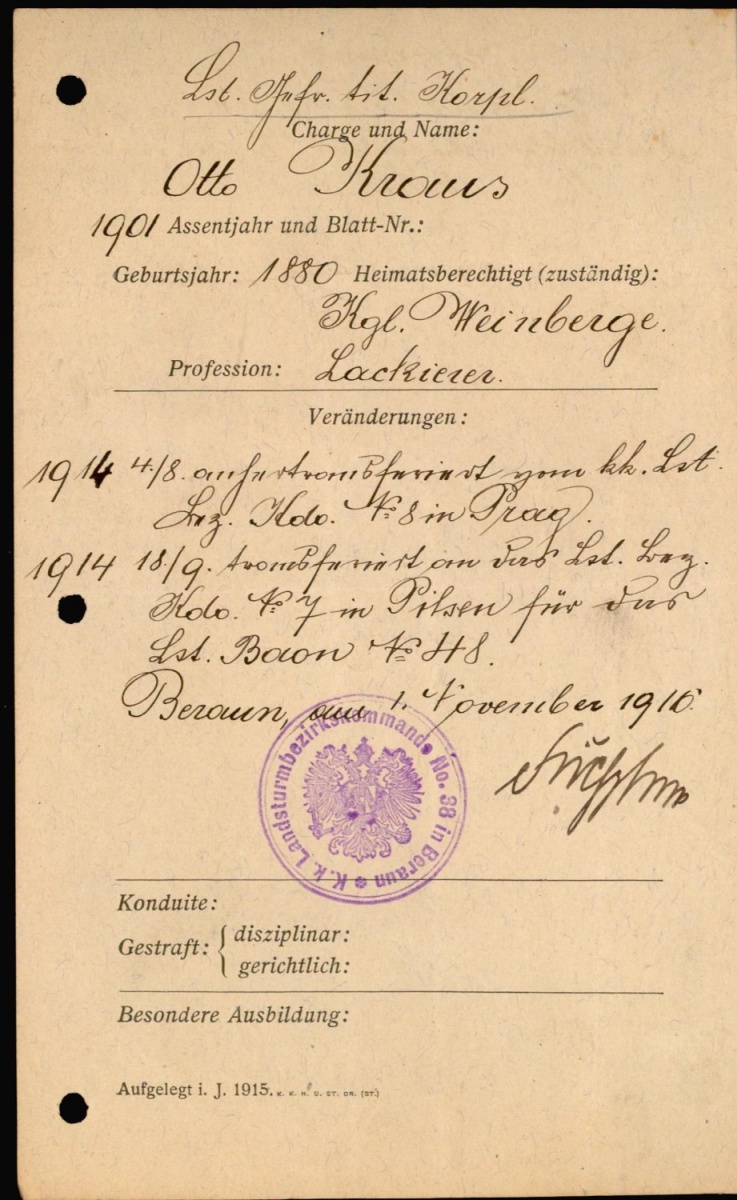 Lst. Gefr. tit. Korpl.
Charge und Name:
Otto Kraus
1901 Assentjahr und Blatt-Nr.:
Geburtsjahr: 1880 Heimatsberechtigt (zuständig):
Kgl. Weinberge.
Profession: Lackierer.
Veränderungen:
1914 4./8. anhertransferiert vom kk. Lst.
Bez. Kdo. No 8 in Prag.
1914 18/9. transferiert an das Lst. Bez.
Kdo. No 7 in Pilsen für das
Lst. Baon No 48.
Beraun, am 1. November 1916.
K. k. Landsturmbezirkskommando No. 38 in Beraun
Konduite:
Gestraft: { disziplinar:
gerichtlich:
Besondere Ausbildung:
Aufgelegt i. J. 1915. K. K. H. U. ST. DR. (ST.)